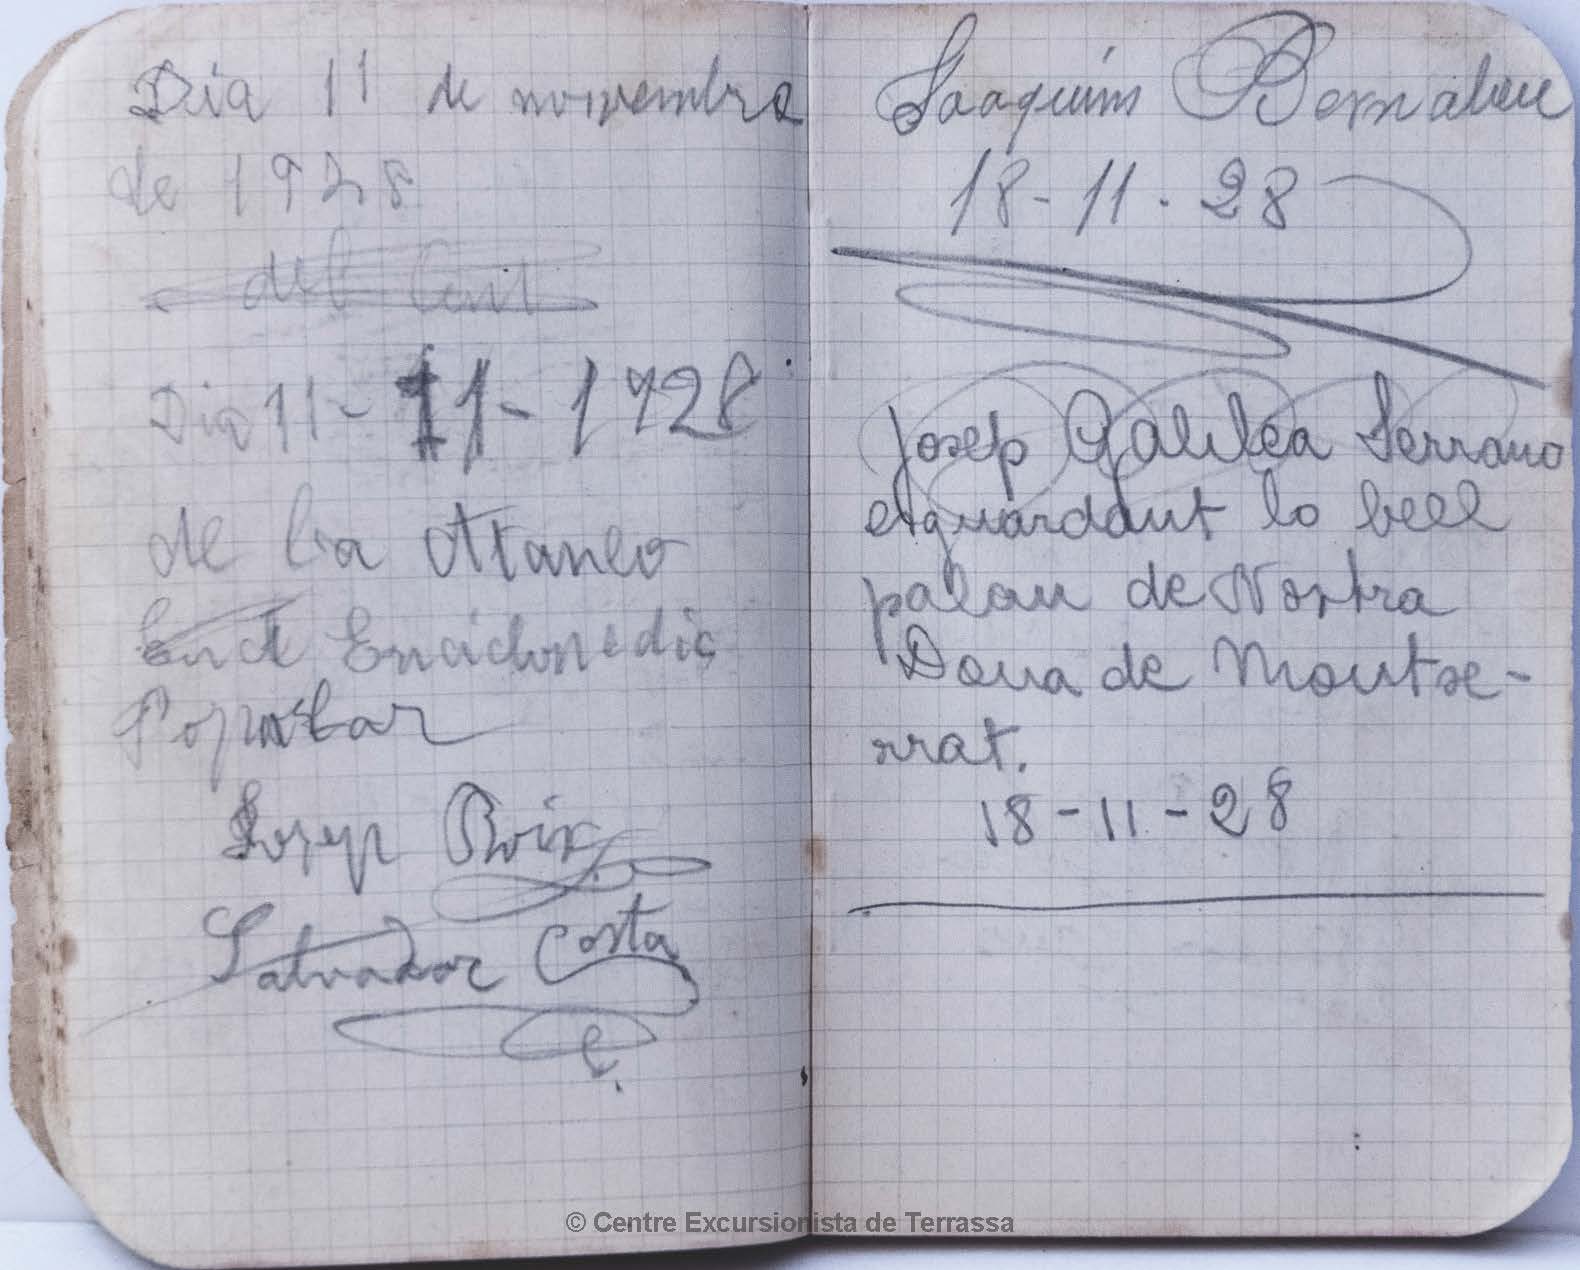 Dia 11 de novembre
de 1928
del Cent
Dia 11-11-1928
de la Ataneo
Enciclopedic
Popular
Josep Roix
Salvador Costa
C.
Joaquim Bernabeu
18-11-28
Josep Galilea Serrano
esguardant lo bell
palau de Nostra
Dona de Montse-
rrat.
18-11-28
© Centre Excursionista de Terrassa